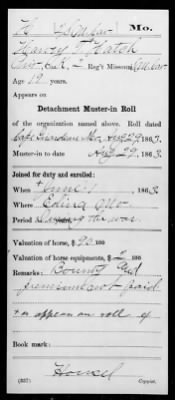 H | 2 Cavalry. | Mo.
Harvey T. Hatch
Pvt., Co. K, 2 Reg't Missouri Cavalry.
Age 19 years.
Appears on
Detachment Muster-in Roll
of the organization named above. Roll dated
Cape Girardeau Mo, Aug 29, 1863.
Muster-in to date Aug 29, 1863.
Joined for duty and enrolled:
When June 1, 1863
Where Edina Mo
Period During the war
Valuation of horse, $ 93 100
Valuation of horse equipments, $ 2 100
Remarks: Bounty and
premium not paid
+ as appear on roll of
Book mark:
(337) Copyist.